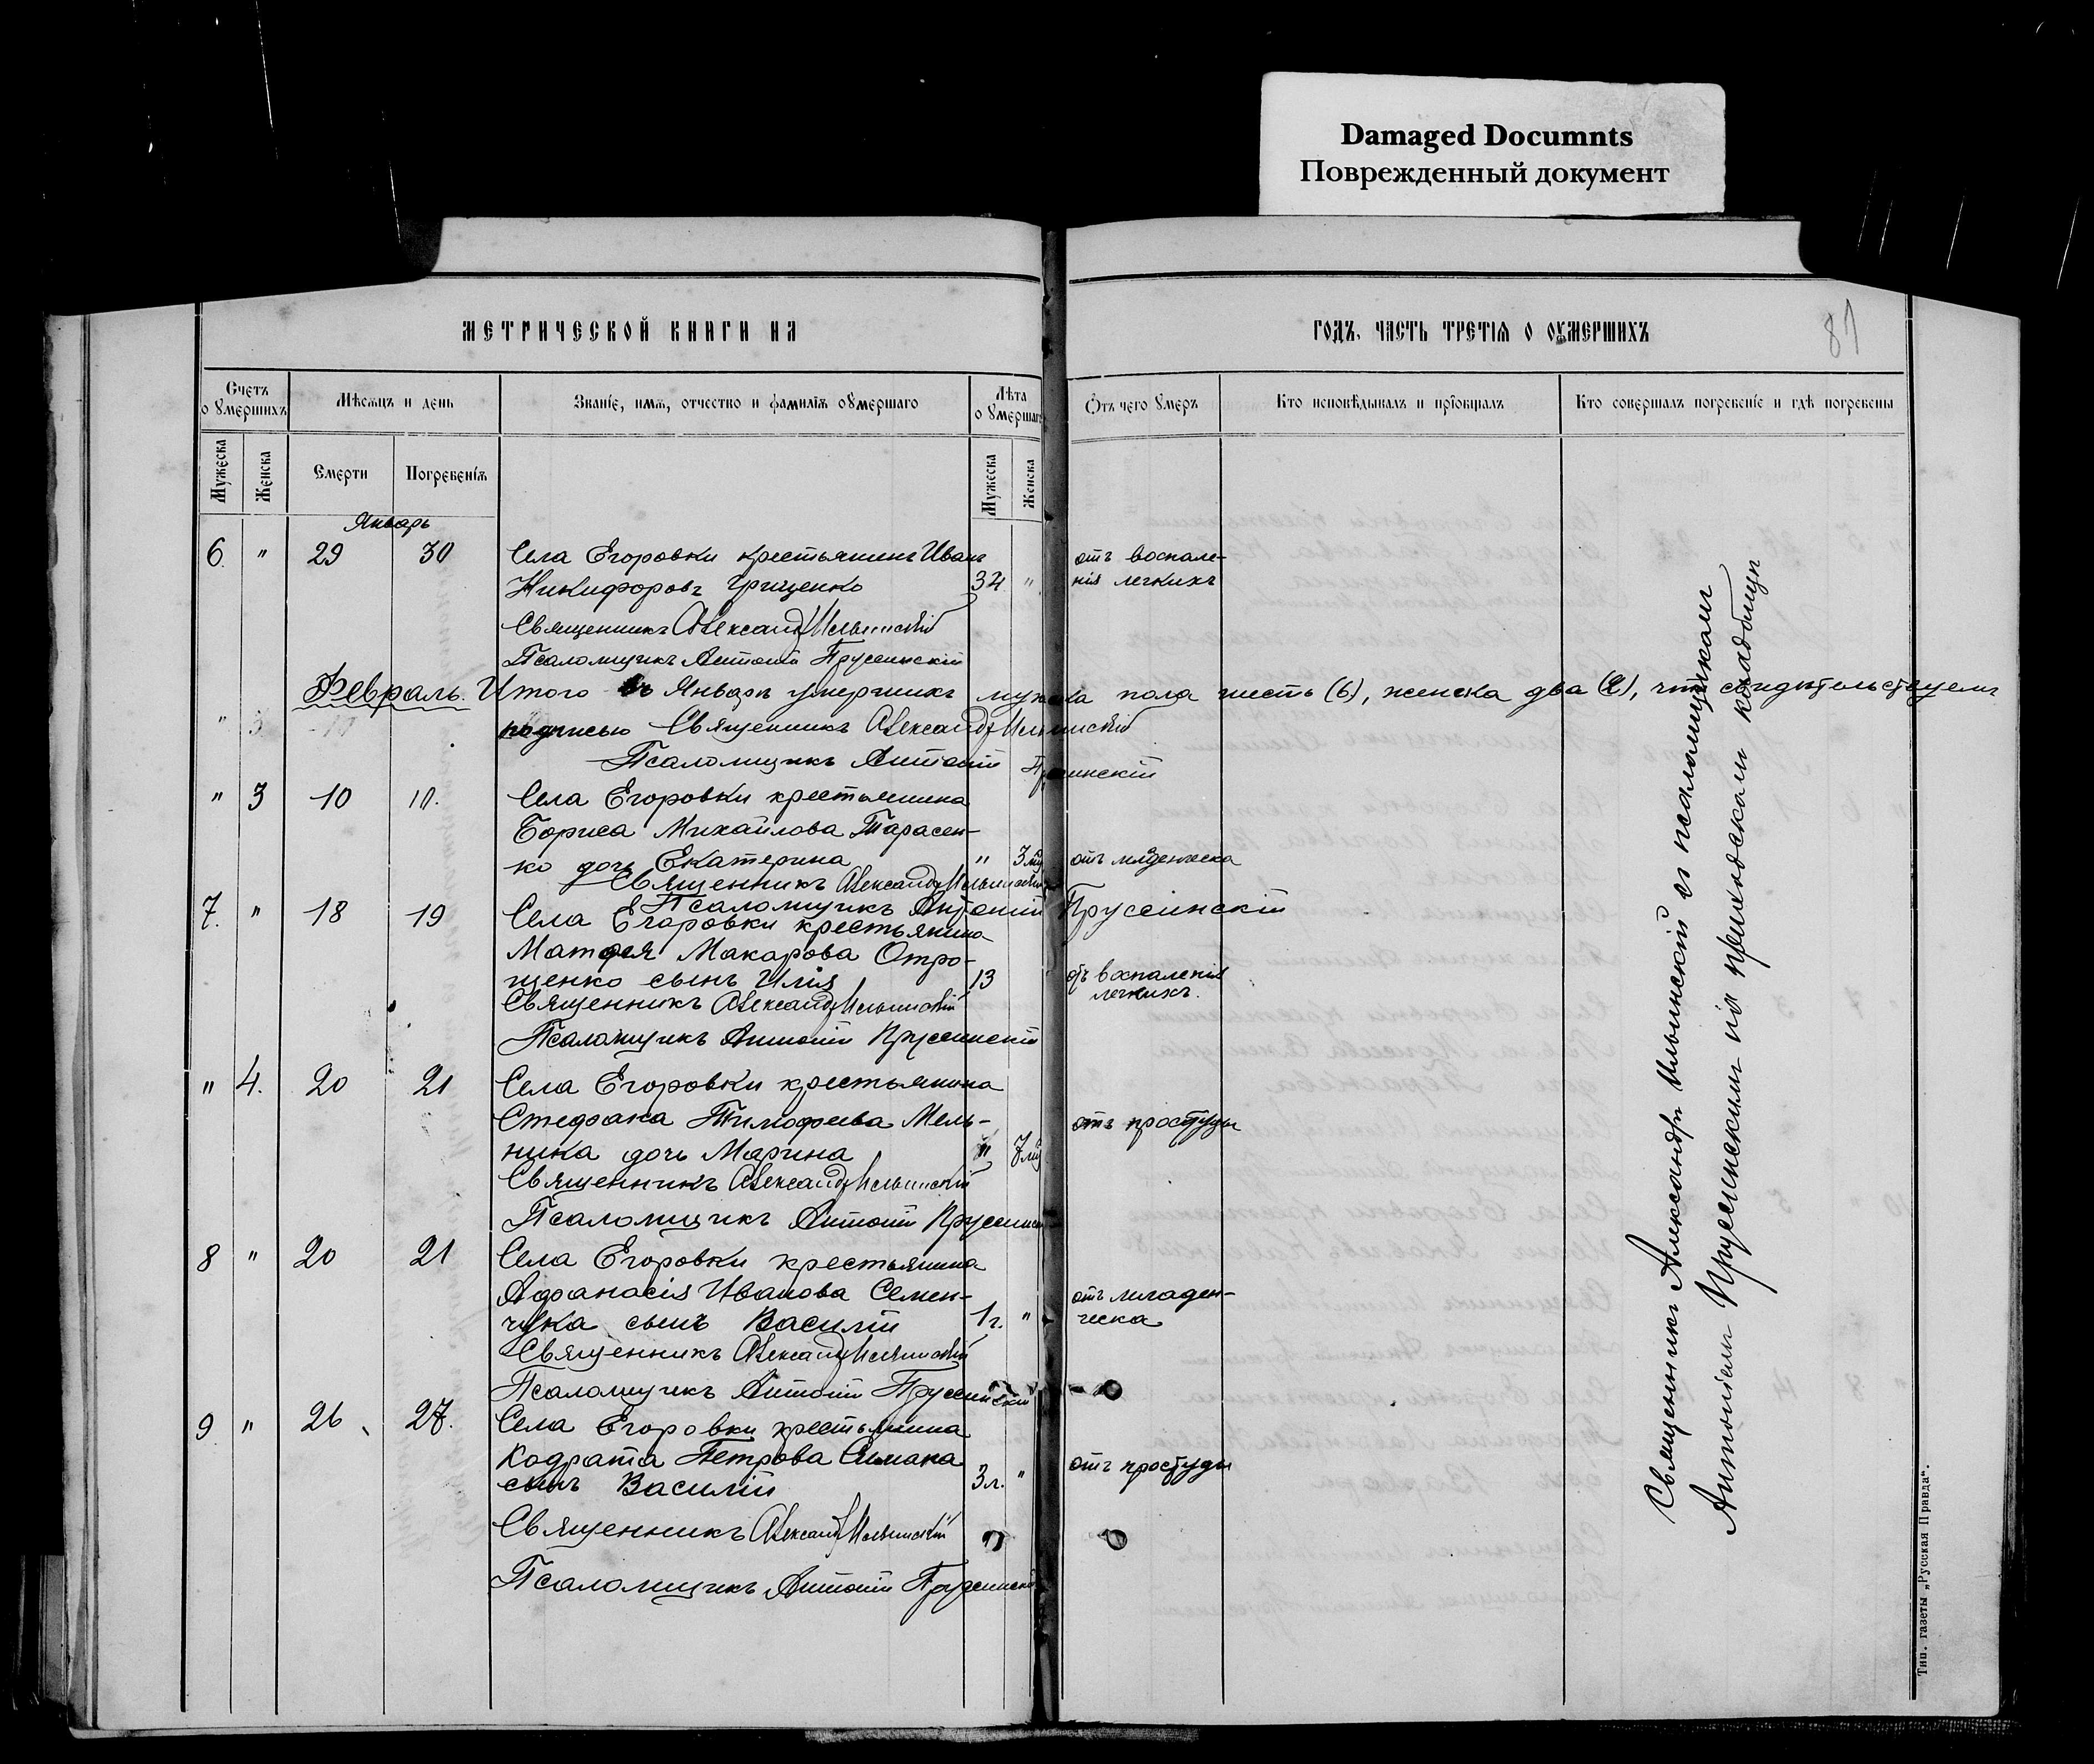 Damaged Documnts
Поврежденный документ
МЕТРИЧЕСКОЙ КНИГИ НА
ГОДЪ, ЧАСТЬ ТРЕТІЯ О ОУМЕРШИХЪ
81
Счетъ оумершихъ
Мѣсяцъ и день
Званіе, имя, отчество и фамилія оумершаго
Лѣта оумершаго
Отъ чего умеръ
Кто исповѣдывалъ и пріобщалъ
Кто совершалъ погребеніе и гдѣ погребены
Мужеска
Женска
Смерти
Погребенія
Мужеска
Женска
Январь
6. " 29 30 Села Егоровки крестьянинъ Иванъ отъ воспале-
Никифоровъ Грищенко 34 " нія легкихъ
Священникъ Александръ Ильинскій
Псаломщикъ Антоній Прусинскій
Февраль. Итого въ Январѣ умершихъ мужска пола шесть (6), женска два (2), что свидѣтельствуемъ
" 3 10 подписью Священникъ Александръ Ильинскій
Псаломщикъ Антоній Прусинскій
" 3 10 10. Села Егоровки крестьянина
Бориса Михайлова Тарасен-
ко дочь Екатерина " 3 мц отъ младенческа
Священникъ Александръ Ильинскій
Псаломщикъ Антоній Прусинскій
7. " 18 19 Села Егоровки крестьянина
Матфея Макарова Отро-
щенко сынъ Илія 13 отъ воспаленія
легкихъ.
Священникъ Александръ Ильинскій
Псаломщикъ Антоній Прусинскій
" 4. 20 21 Села Егоровки крестьянина
Стефана Тимофеева Мель- отъ простуды
ника дочь Марина " 7 мц
Священникъ Александръ Ильинскій
Псаломщикъ Антоній Прусинскій
8 " 20 21 Села Егоровки крестьянина
Афанасія Иванова Семен- отъ младен-
чука сынъ Василій 1 г. " ческа
Священникъ Александръ Ильинскій
Псаломщикъ Антоній Прусинскій
9 " 26 27. Села Егоровки крестьянина
Кодрата Петрова
сынъ Василій 3 л. " отъ простуды
Священникъ Александръ Ильинскій
Псаломщикъ Антоній Прусинскій
Священникъ Александръ Ильинскій съ псаломщикомъ
Антоніемъ Прусинскимъ на приходскомъ кладбищѣ
Тип. газеты „Русская Правда“.